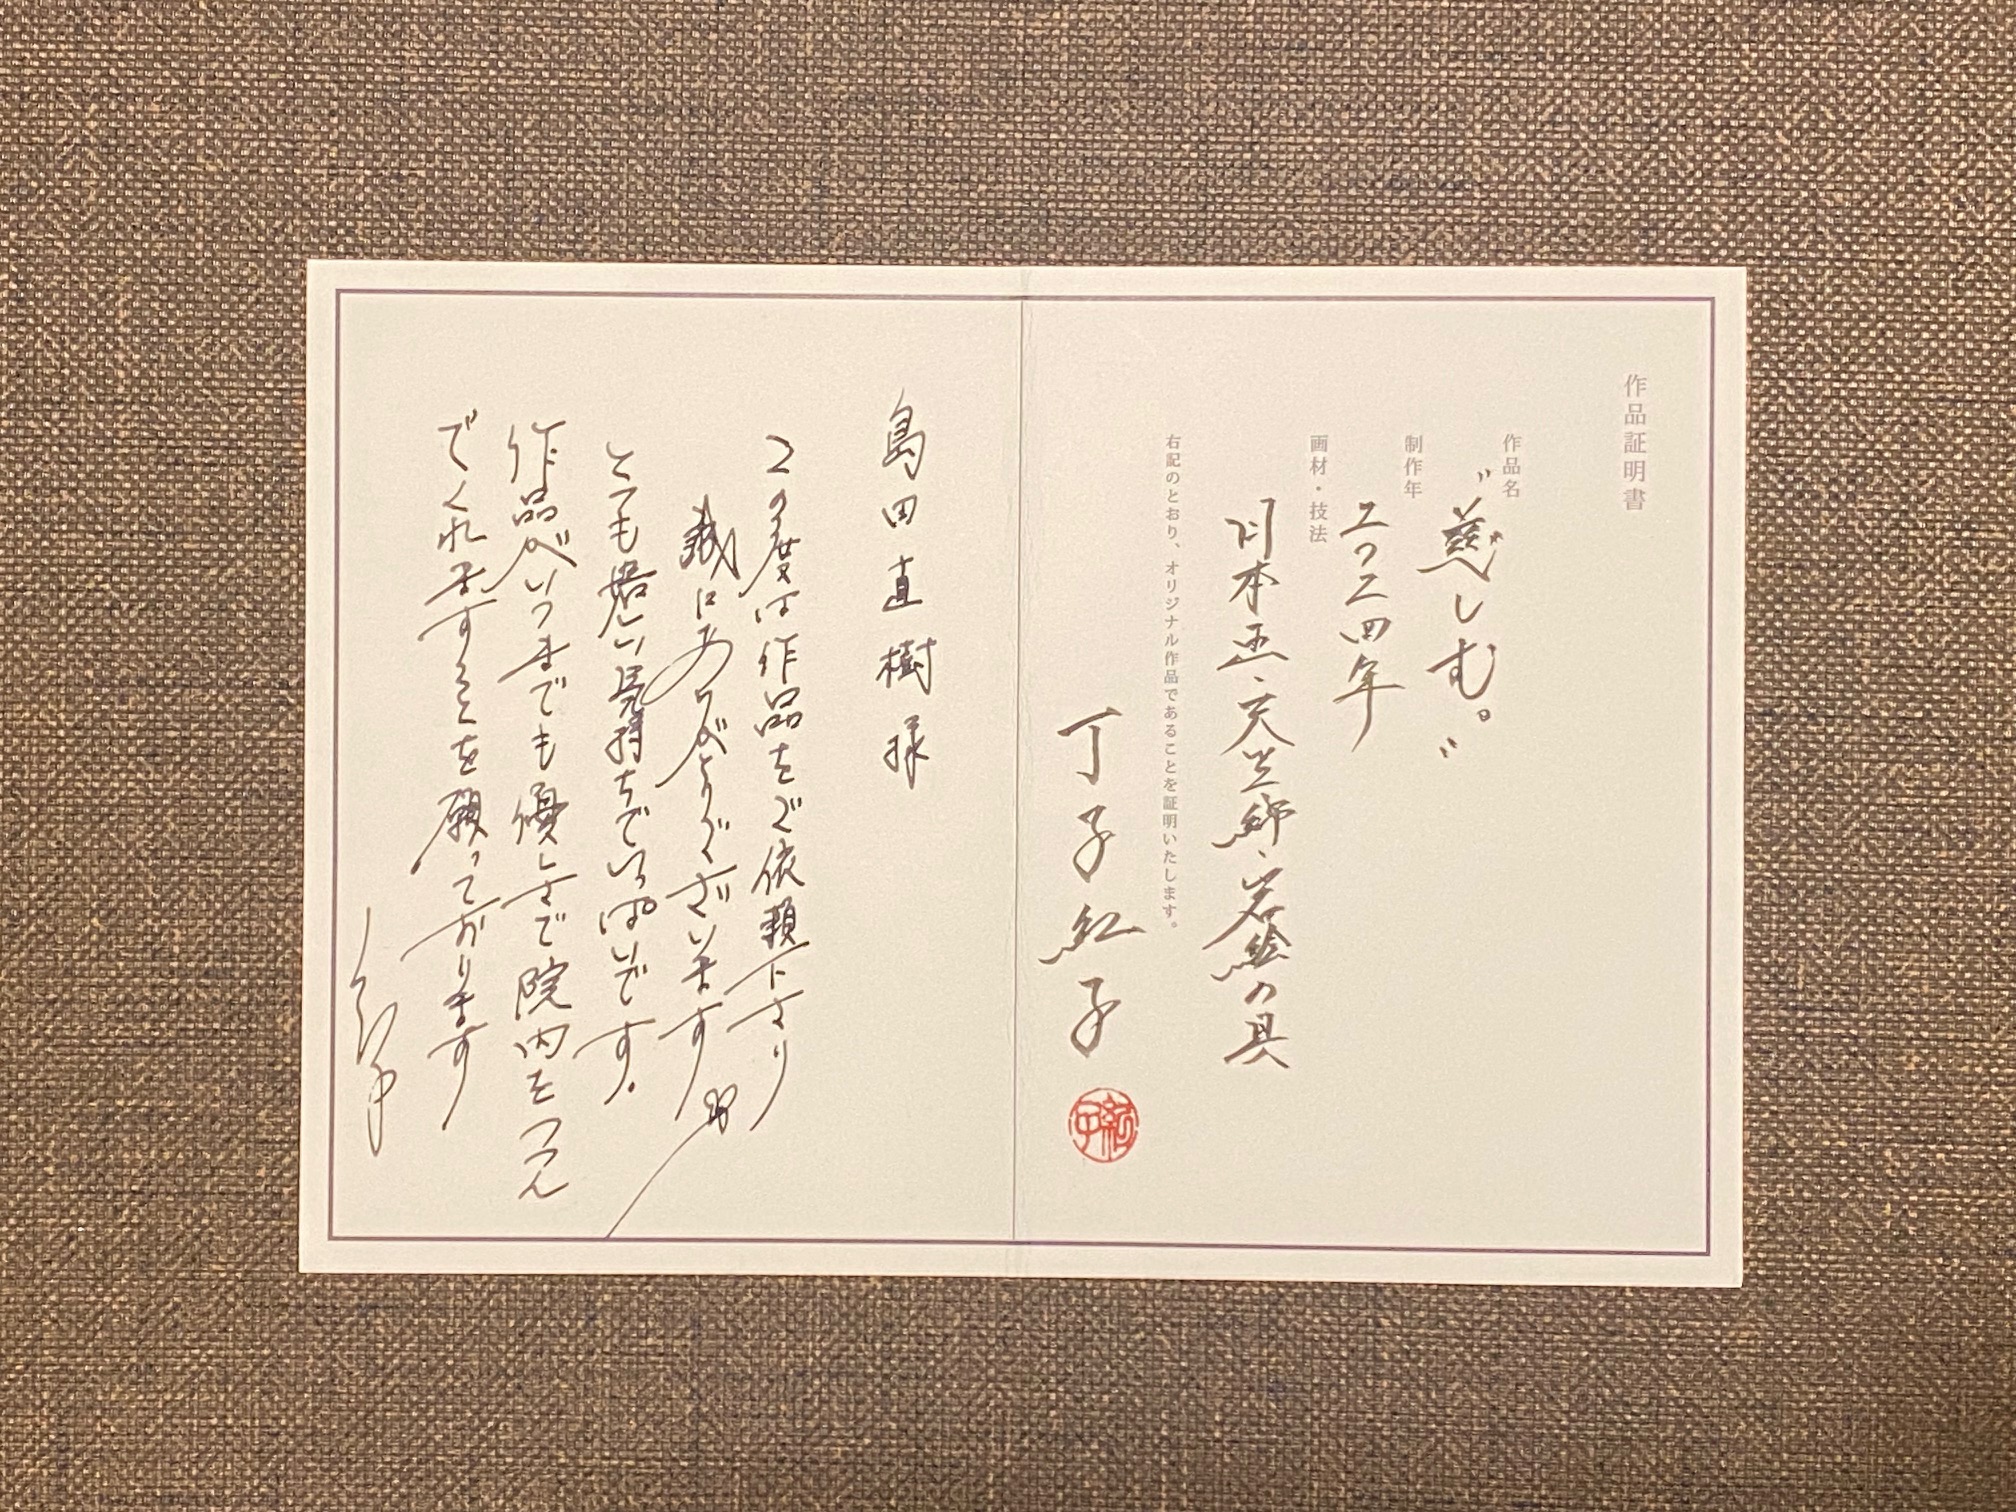 作品証明書
作品名
“慈しむ。”
制作年
二〇二四年
画材・技法
日本画・天竺綿・岩絵の具
右記のとおり、オリジナル作品であることを証明いたします。
丁子紅子
紅子
島田直樹様
この度は作品をご依頼下さり
誠にありがとうございます
とても嬉しい気持ちでいっぱいです。
作品がいつまでも優しさで院内をつつん
でくれますことを願っております